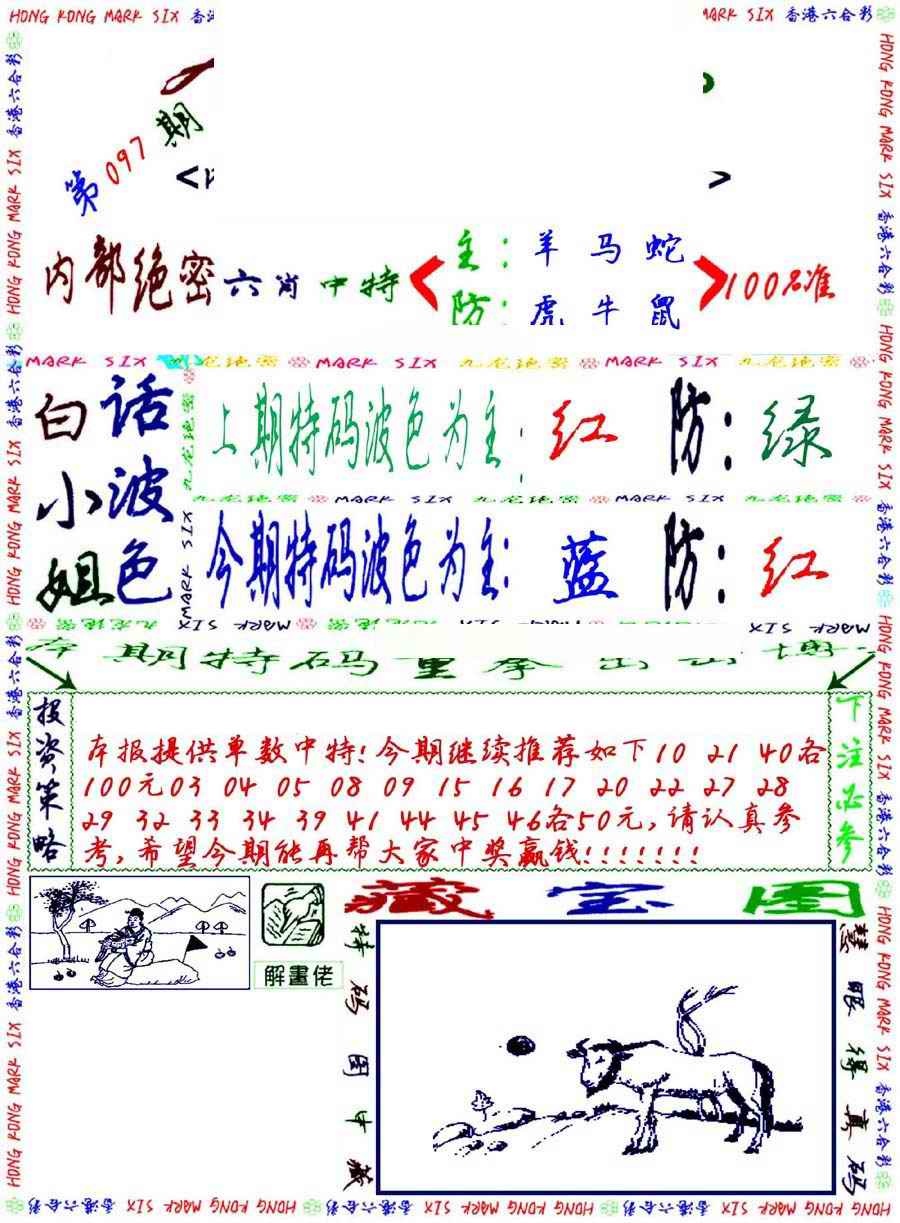 HONG KONG MARK SIX 香港六合彩
第097期
内部绝密六肖中特
主：羊 马 蛇
防：虎 牛 鼠
100%准
MARK SIX 九龙绝密 MARK SIX 九龙绝密 MARK SIX 九龙绝密
白话
小波
姐色
上期特码波色为主：红 防：绿
九龙绝密 MARK SIX 九龙绝密 MARK SIX
今期特码波色为主：蓝 防：红
本期特码重拳出击
投资策略
本报提供单数中特！今期继续推荐如下10 21 40各
100元03 04 05 08 09 15 16 17 20 22 27 28
29 32 33 34 39 41 44 45 46各50元,请认真参
考,希望今期能再帮大家中奖赢钱!!!!!!!
下注必参
解畫佬
藏宝图
特码图中藏
慧眼得真码
HONG KONG MARK SIX 香港六合彩